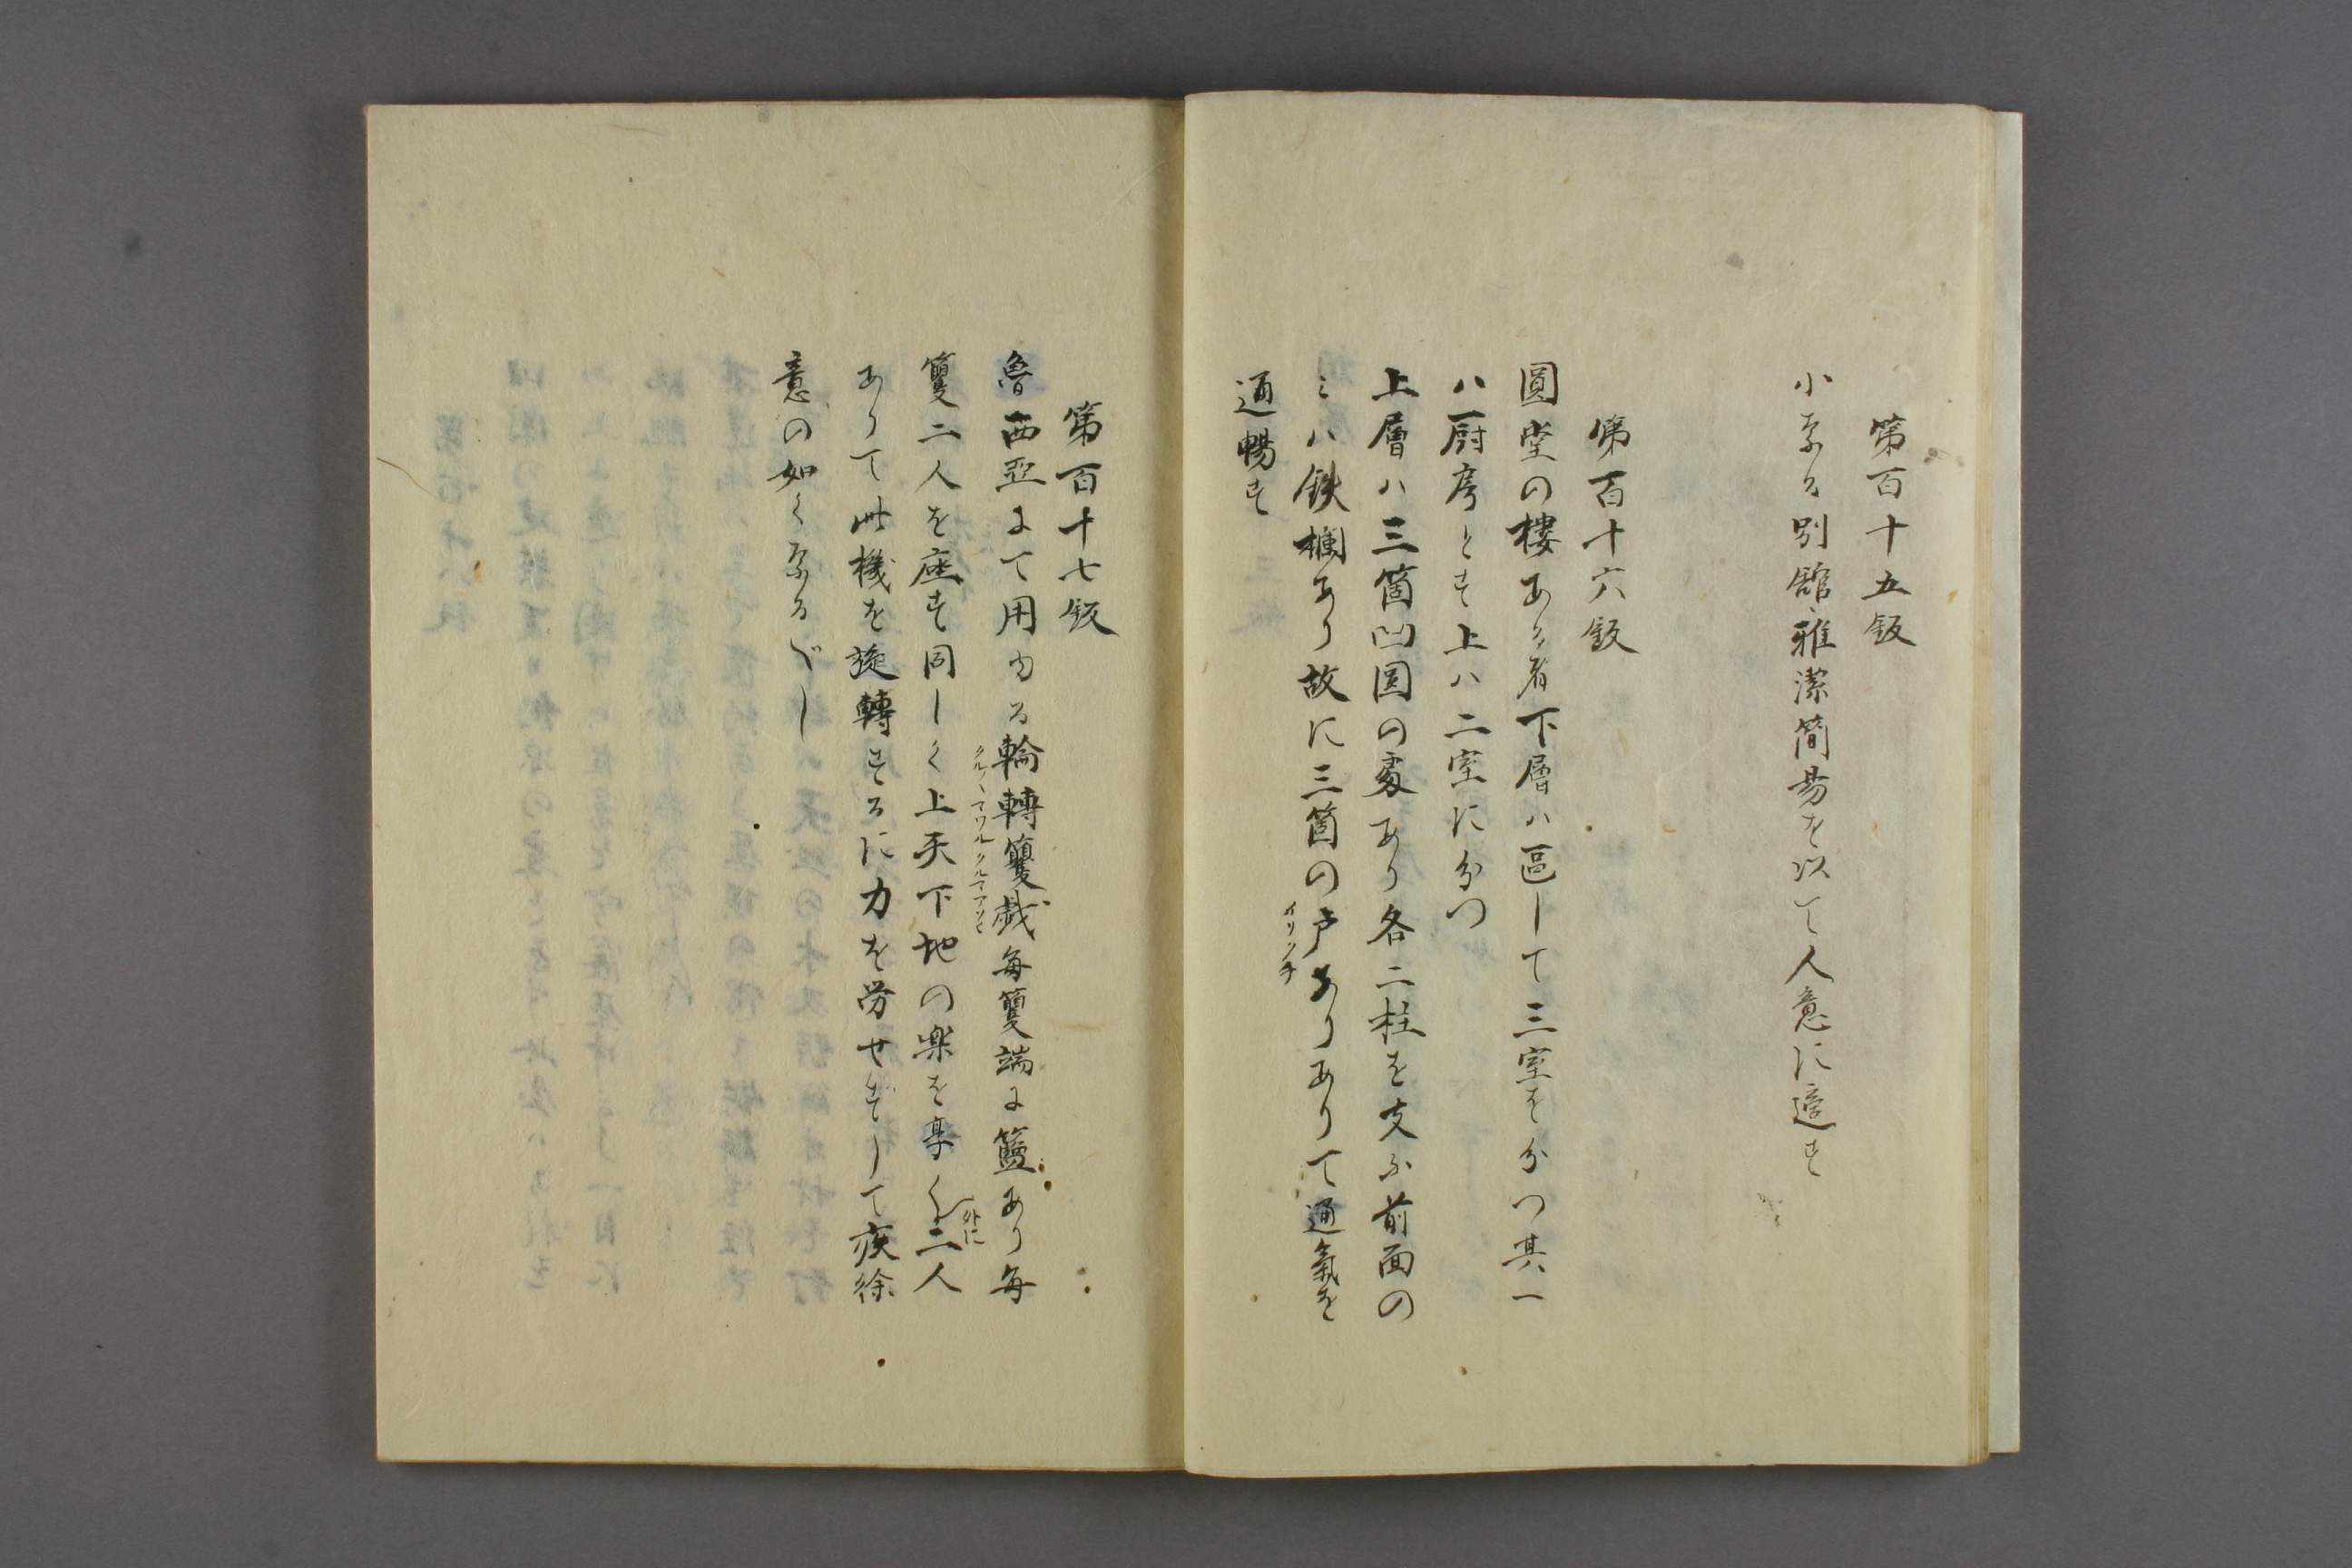 第百十五鈑
小なる別舘雅潔簡易を以て人意に適す
第百十六鈑
圓堂の樓ある者下層ハ區して三室を分つ其一
ハ厨房とす上ハ二室に分つ
上層ハ三箇凹圓の處あり各二柱を支ふ前面の
ミハ鉄欄あり故に三箇の戸ありありて通氣を
イリクチ
通暢す
第百十七鈑
魯西亞にて用ゆる輪轉籰戯毎籰端に籃あり毎
クル〳〵マワルクルマアソヒ
籰二人を座す同しく上天下地の楽を享く二人
外に
ありて此機を旋轉するに力を労せずして疾徐
意の如くなるべし